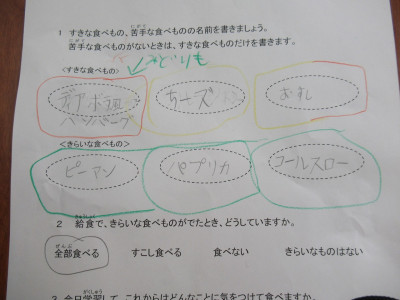 1 すきな食べもの、苦手な食べものの名前を書きましょう。
苦手な食べものがないときは、すきな食べものだけを書きます。
みどりも
<すきな食べもの>
ディアボラ風
ハンバーグ
チーズ
おすし
<きらいな食べもの>
ピーマン
パプリカ
コールスロー
2 給食で、きらいな食べものがでたとき、どうしていますか。
全部食べる すこし食べる 食べない きらいなものはない
3 今日学習して、これからはどんなことに気をつけて食べますか。